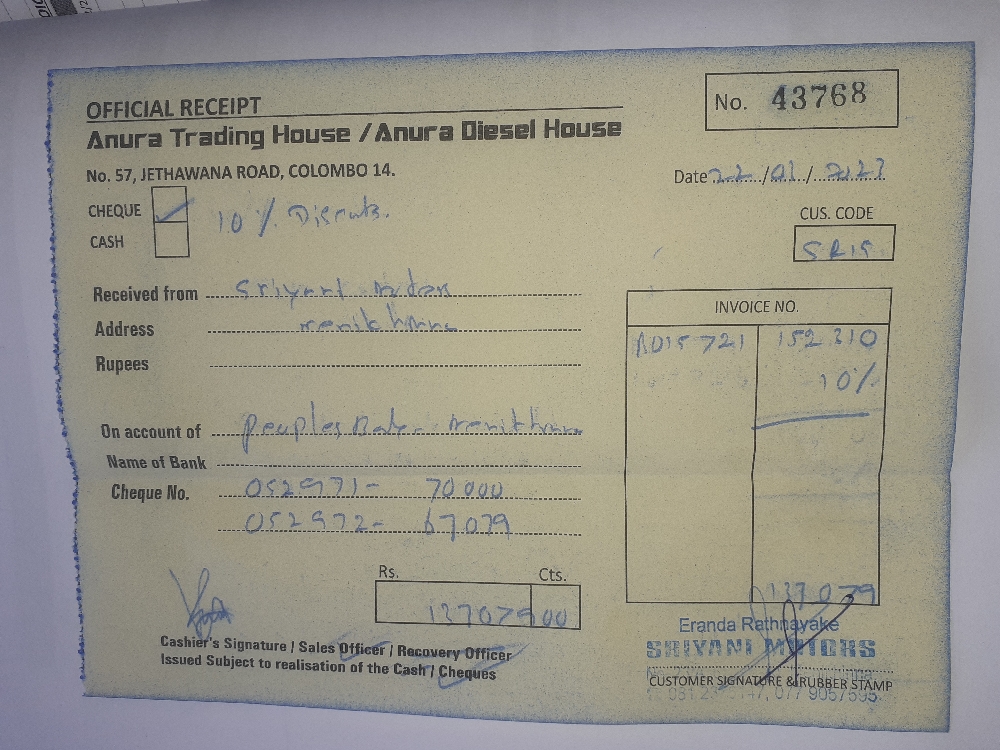 OFFICIAL RECEIPT
No. 43768
Anura Trading House / Anura Diesel House
No. 57, JETHAWANA ROAD, COLOMBO 14.
Date 22/01/2023
CHEQUE
10 %
CASH
CUS. CODE
SRIS
Received from
Address
Rupees
INVOICE NO.
AD15721 152 310
10%
On account of Peoples
Name of Bank
Cheque No. 052971- 70000
052972- 67079
Rs. Cts.
137079 00
137079
Eranda Rathnayake
SRIYANI MOTORS
Cashier's Signature / Sales Officer / Recovery Officer
Issued Subject to realisation of the Cash / Cheques
CUSTOMER SIGNATURE & RUBBER STAMP